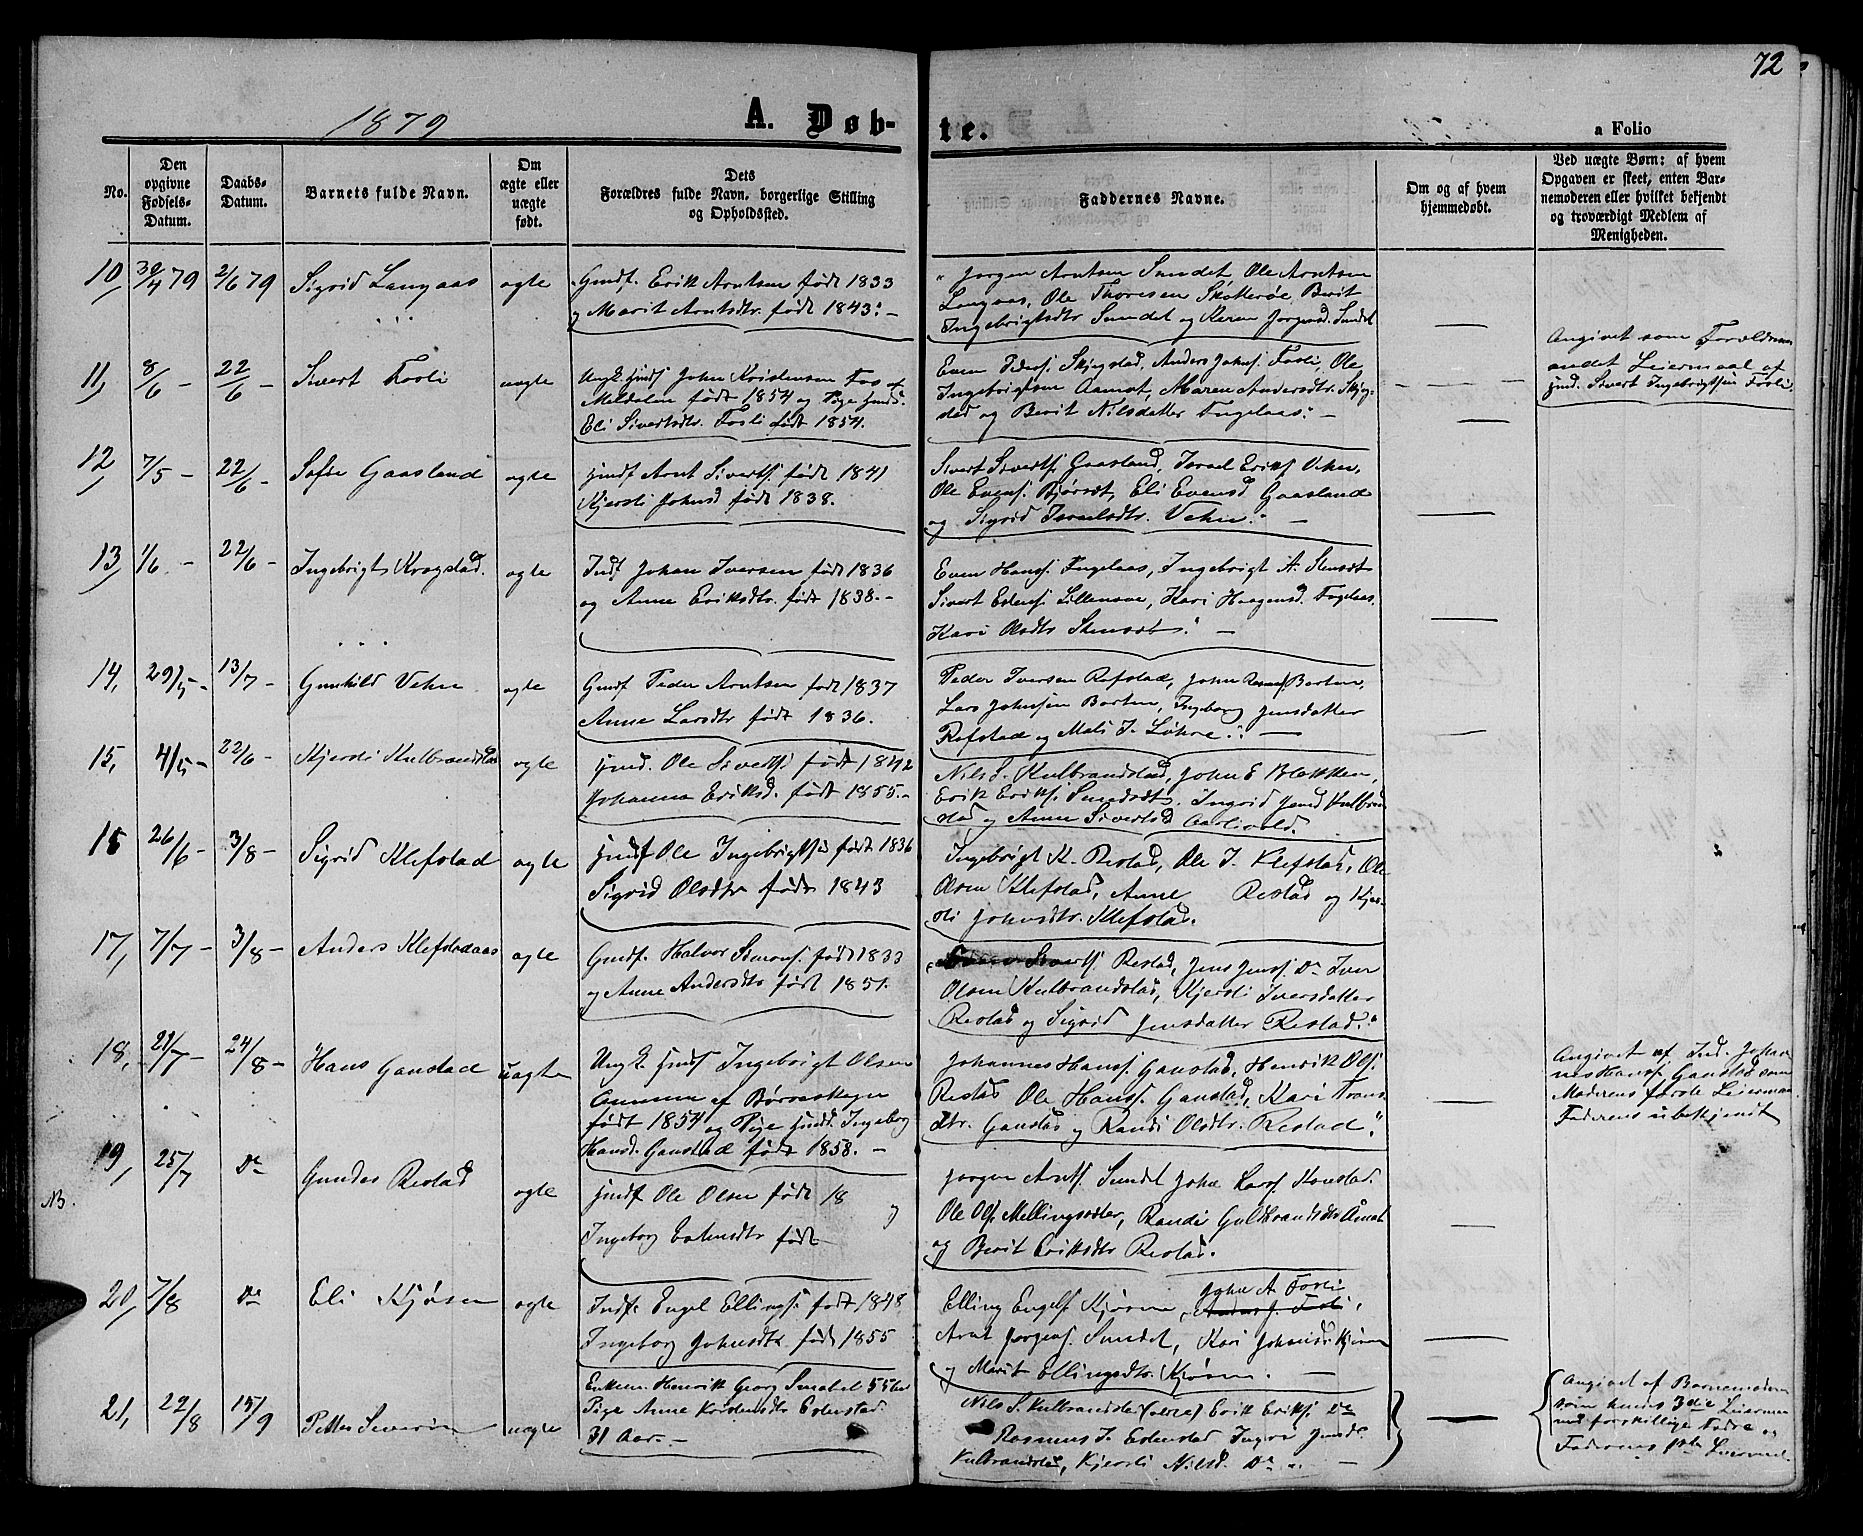 72
1879
A. Døb-
te.
a Folio
No.
Den
opgivne
Fødsels-
Datum.
Daabs-
Datum.
Barnets fulde Navn.
Om
ægte eller
uægte
født.
Dets
Forældres fulde Navn, borgerlige Stilling
og Opholdssted.
Faddernes Navne.
Om og af hvem
hjemmedøbt.
Ved uægte Børn: af hvem
Opgaven er skeet, enten Bar-
nemoderen eller hvilket bekjendt
og troværdigt Medlem af
Menigheden.
10, 30/4 79 2/6 79 Sigrid Langaas ægte
Gmdf. Erik Arntsen født 1833
og Marit Arntsdtr. født 1843.
Jørgen Arntsen Sundet, Ole Arntsen
Langaas, Ole Thoresen Skotterøe, Berit
Ingebrigtsdtr Sundet og Karen Jørgensd. Sundet
11, 8/6 - 22/6 - Sivert Fosli uægte
Ungk. Gmdf John Kristensen Fos af
Meldalen født 1854 og Pige Gmdd.
Eli Sivertsdtr. Fosli født 1854.
Even Peders. Skjegstad, Anders Johns. Fosli, Ole
Ingebrigtsen Aamot, Maren Andersdtr. Skjeg-
stad og Berit Nilsdatter Engelaas. -
Angivet som Forældrenes
andet Leiermaal af
Gmd. Sivert Ingebrigtsen Fosli
12, 7/5 - 22/6 - Sofie Gaasland ægte
Gmdf Arnt Siverts. født 1841
Kjersti Johnsd født 1838.
Sivert Siverts. Gaasland, Israel Eriks. Vehn,
Ole Evens. Bjørset, Eli Evensd Gaasland
og Sigrid Israelsdtr. Vehn. -
13, 1/6 - 22/6 - Ingebrigt Krogstad. ægte
Indf Johan Iversen født 1836
og Anne Eriksdtr. født 1838. -
Even Hans. Engelaas, Ingebrigt A. Stensæt
Sivert Estens. Lillemoe, Kari Haagensd. Engelaas,
Kari Olsdtr Stensæt. -
14, 29/5 - 13/7 - Gunhild Vehn ægte
Gmdf Peder Arntsen født 1837
Anne Larsdtr født 1836.
Peder Iversen Refstad, John Rasmus. Borten,
Lars Johnsen Borten, Ingeborg Jensdatter
Refstad og Mali J. Løhre. -
15, 4/5 - 22/6 - Kjersti Kulbrandstad ægte
Gmd. Ole Siverts. født 1842
Johanna Eriksd. født 1855. -
Nils S. Kulbrandstad, John E Blekken,
Erik Eriks. Sundsæt, Ingrid Jensd Kulbrand-
stad og Anne Sivertsd
16 26/6 - 3/8 - Sigrid Klefstad ægte
Gmdf Ole Ingebrigtsen født 1836
Sigrid Olsdtr født 1843
Ingebrigt K. Restad, Ole J. Klefstad, Ole
Olsen Klefstad, Anne Restad og Kjer-
sti Johnsdtr. Klefstad.
17, 7/7 - 3/8 - Anders Klefstadaas ægte
Gmdf. Halvor Simons. født 1833
og Anne Andersdtr født 1851.
Siverts. Restad, Jens Jens. Do Iver
Olsen Kulbrandstad, Kjersti Iversdatter
Restad og Sigrid Jensdatter Restad.
18, 21/7 - 24/8 - Hans Ganstad uægte
Ungk Gmdf Ingebrigt Olsen
født 1854 og Pige Gmdd. Ingeborg
Hansd. Ganstad født 1858. -
Johannes Hans. Ganstad, Henrik Ols.
Restad Ole Hans. Ganstad, Kari
dtr. Ganstad og Randi Olsdtr. Restad.
Angivet af Ind. Johan-
nes Hans. Ganstad som
Moderens første Leiermaal
Faderens ubekjendt
19, 25/7 Do Gunder Restad ægte
NB.
Gmdf Ole Olsen født 18 og
Ingeborg Estensdtr født
Jørgen Arnts. Sundet John Lars. Konstad.
Ole Ols. Mellingsæter, Randi Guldbrandsdtr Åmot
og Berit Eriksdtr Restad.
20, 7/8 Do Eli Kjøsen ægte
Indf. Engel Ellings. født 1848
Ingeborg Johnsdtr født 1855
Elling Engels. Kjøsen, John A Fosli
Anders J. Fosli,
Arnt Jørgens. Sundet, Kari Johansdtr Kjøsen
og Marit Ellingsdtr. Kjøsen. -
21, 22/8 15/9 Petter Severin uægte
Enkem. Henrik Georg Smabel 55 Aar
Pige Anne Kristensdtr Estenstad
31 Aar. -
Nils S. Kulbrandstad (øvre) Erik Eriks. Do
Rasmus J. Estenstad Ingri Jensd.
Kulbrandstad, Kjersti Nilsd. Do -
Angivet af Barnemoderen
som hendes 3die Leiermaal
med forskillige Fædre og
Faderens 1ste Leiermaal